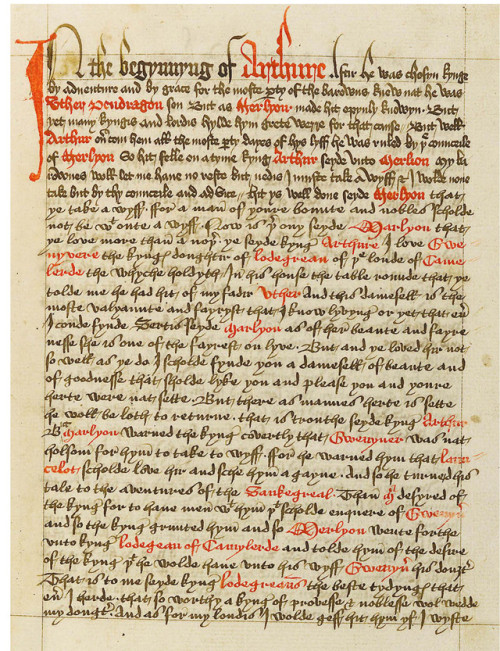 IN the begynnyng of Arthure. Aftir he was chosyn kynge
by adventure and by grace for the moste pty of the barowns knew nat he was
Uther Pendragon son But as Merlyon made hit opynly knowyn. But
yet many kyngis and lordis hylde hym grete werre for that cause / But well
Arthur ouercom hem all the moste pty dayes of hys lyff he was ruled by þe counceile
of Merlyon So hit felle on a tyme kyng Arthur seyde unto Merlion My ba
rownes woll let me have no reste but nedis I muste take A wyff & I wolde none
take but by thy counceile and advice // hit ys well done seyde Merlyon that
ye take a wyff. ffor a man of youre bounté and nobles scholde
not be wt oute a wyff. Now is þr ony seyde Marlyon that
ye love more than a noþr ye seyde kyng Arthure I love Gwe
nyvere the kynges doughtir of lodegrean of þe londe of Came
lerde the whyche holdyth in his house the table rounde that ye
tolde me he had hit of my fadir Uther And this damesell is the
moste valyaunte and fayryst that I know lyvyng or yet that eu
I coude fynde. Sertis seyde Marlyon as of her beaute and fayre
nesse she is one of the fayrest on lyve. But and ye loved hir not
so well as ye do I scholde fynde you a damesell of beaute and
of goodnesse that sholde lyke you and please you and youre
herte were nat sette. But there as mannes herte is sette
he woll be loth to returne. that is trouthe seyde kyng Arthur
But Marlyon warned the kyng covertly that Gwenyver was nat
holsom for hym to take to wyff. ffor he warned hym that laun
celot scholde love hir and sche hym a gayne. And so he turned his
tale to the aventures of the Sankegreal. Than M desyred of
the kyng for to hane men wt hym þt scholde enquere of Gwenyu
and so the kyng graunted hym and so Merlyon wente forthe
unto kyng lodegean of Camylerde and tolde hym of the desire
of the kyng þt he wolde have unto his wyff Gwenyu his dougtr
That is to me seyde kyng lodegreauns the beste tydynges that
eu I herde. that so worthy a kyng of provesse & noblesse wol wedde
my dougtr. And as for my londis I wolde geff hit hym yf I wyste